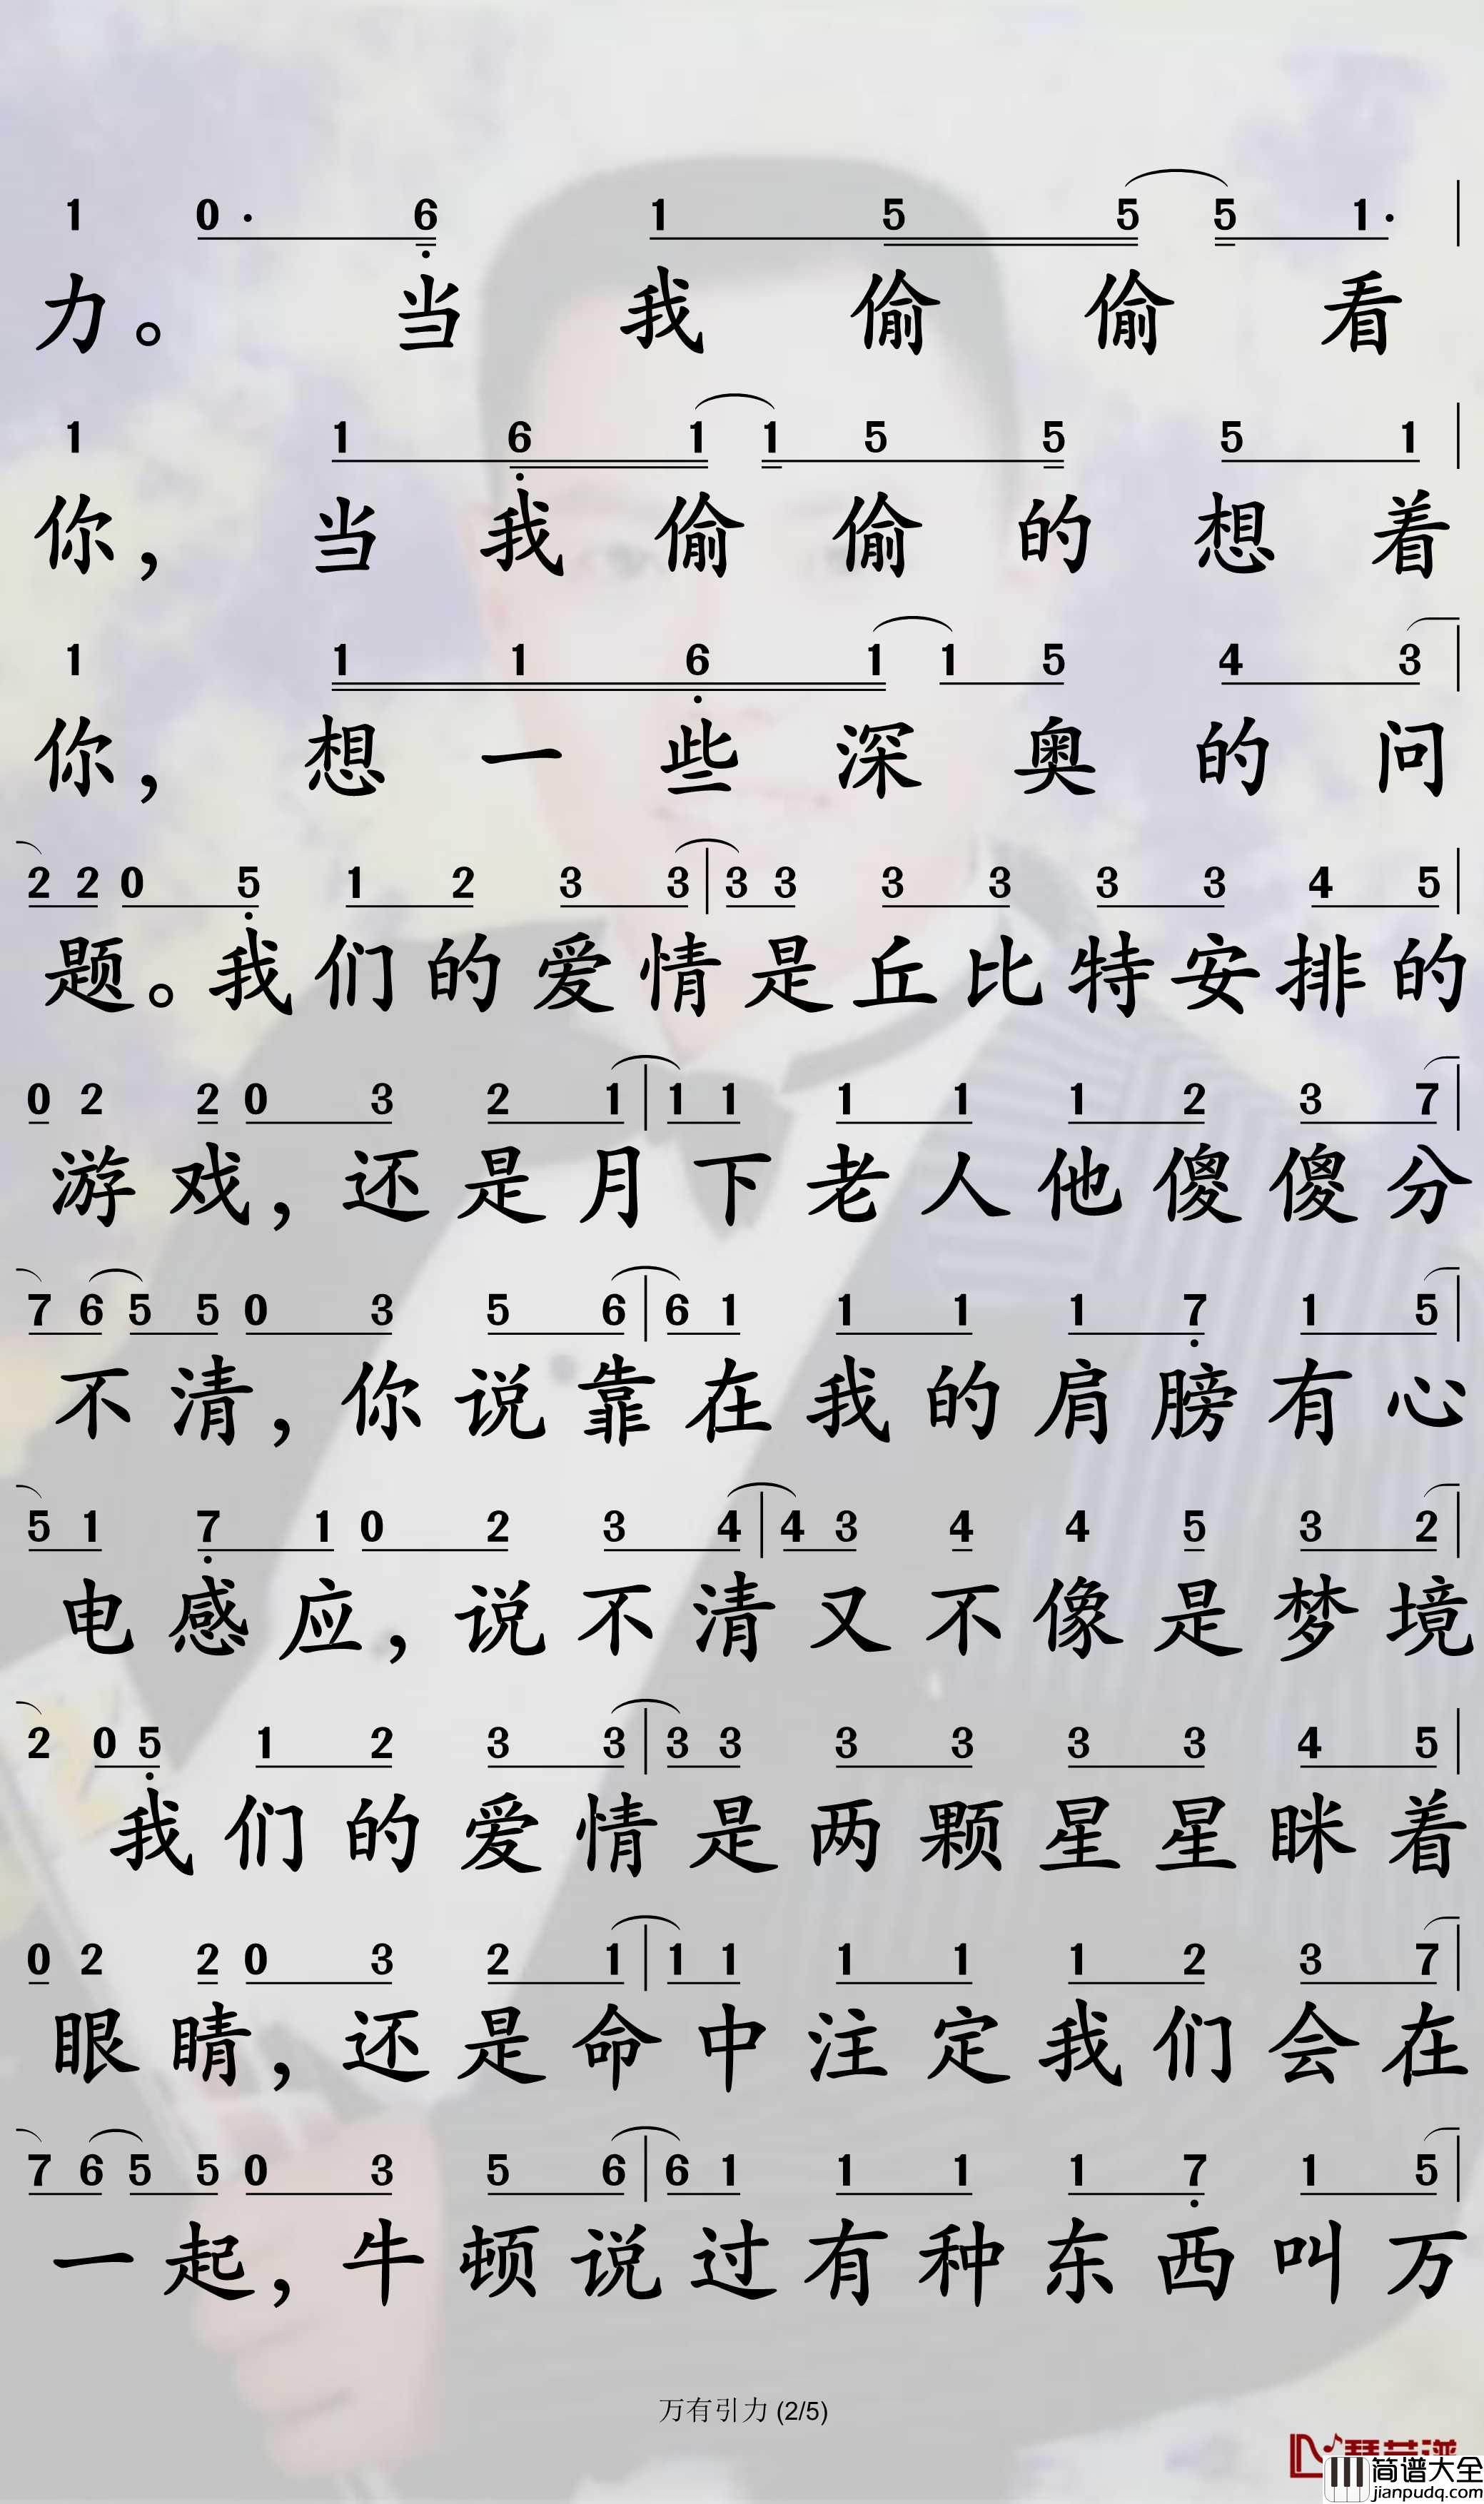 1 0· 6 1 5 5 5 1·
力。 当 我 偷 偷 看
1 1 6 1 1 5 5 5 1
你, 当 我 偷 偷 的 想 着
1 1 1 6 1 1 5 4 3
你, 想 一 些 深 奥 的 问
2 2 0 5 1 2 3 3 | 3 3 3 3 3 3 4 5
题。我 们 的 爱 情 是 丘 比 特 安 排 的
0 2 2 0 3 2 1 | 1 1 1 1 1 2 3 7
游 戏, 还 是 月 下 老 人 他 傻 傻 分
7 6 5 5 0 3 5 6 | 6 1 1 1 1 7 1 5
不 清, 你 说 靠 在 我 的 肩 膀 有 心
5 1 7 1 0 2 3 4 | 4 3 4 4 5 3 2
电 感 应, 说 不 清 又 不 像 是 梦 境
2 0 5 1 2 3 3 | 3 3 3 3 3 3 4 5
我 们 的 爱 情 是 两 颗 星 星 眯 着
0 2 2 0 3 2 1 | 1 1 1 1 1 2 3 7
眼 睛, 还 是 命 中 注 定 我 们 会 在
7 6 5 5 0 3 5 6 | 6 1 1 1 1 7 1 5
一 起, 牛 顿 说 过 有 种 东 西 叫 万
万有引力 (2/5)
简谱大全
jianpudq.com